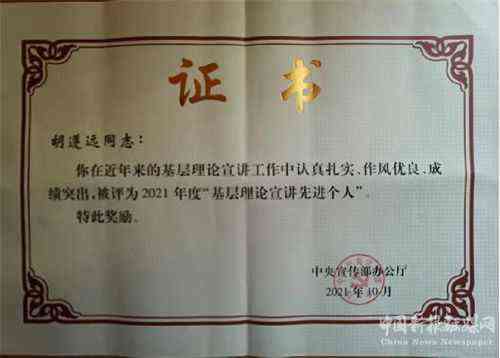 证书
胡遵远同志：
你在近年来的基层理论宣讲工作中认真扎实、作风优良、成
绩突出，被评为2021年度“基层理论宣讲先进个人”。
特此奖励。
中央宣传部办公厅
2021年10月
中国新报融媒网
China News Newspaper